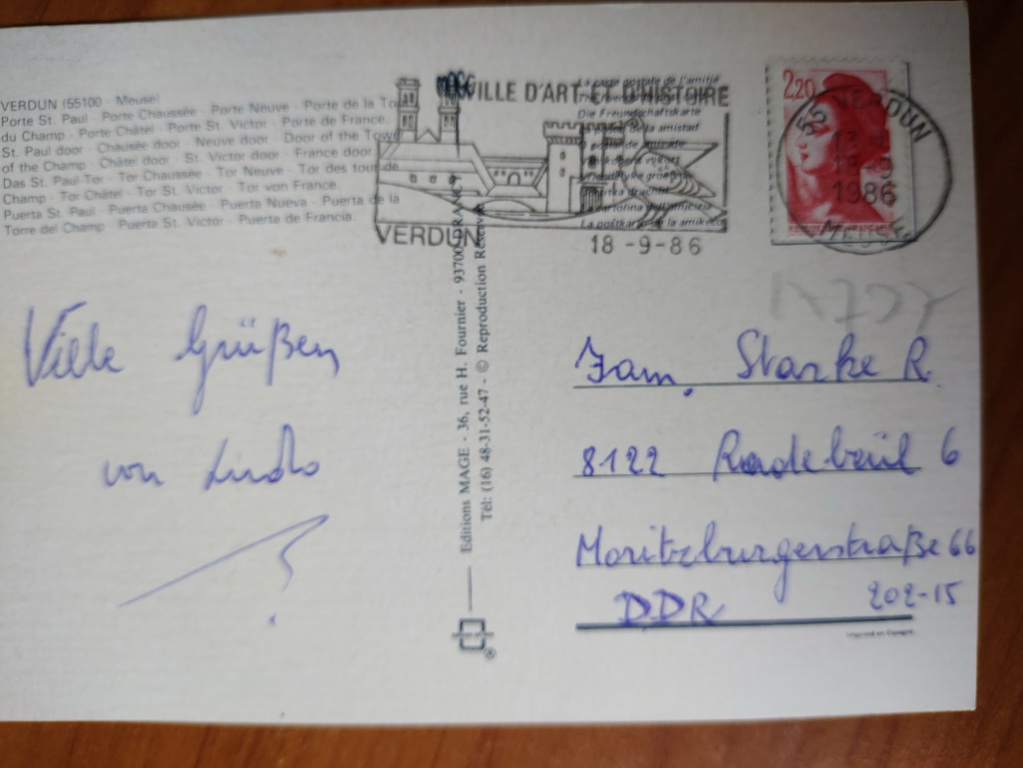 VERDUN (55100 - Meuse)
Porte St. Paul - Porte Chaussée - Porte Neuve - Porte de la To
du Champ - Porte Châtel - Porte St. Victor - Porte de France.
St. Paul door - Chausée door - Neuve door - Door of the Town
of the Champ - Châtel door - St. Victor door - France door
Das St. Paul-Tor - Tor Chaussée - Tor Neuve - Tor des tour de
Champ - Tor Châtel - Tor St. Victor - Tor von France.
Puerta St. Paul - Puerta Chaussée - Puerta Nueva - Puerta de la
Torre del Champ - Puerta St. Victor - Puerta de Francia.
VILLE D'ART ET D'HISTOIRE
VERDUN
18-9-86
La carte postale de l'amitié
Die Freundschaftskarte
La cartolina dell'amicizia
2,20
52 VERDUN
1986
MEUSE
Viele Grüßen
von
Editions MAGE - 36, rue H. Fournier - 93700 DRANCY
Tél: (16) 48-31-52-47 - © Reproduction
Fam. Starke R.
8122 Radebeul 6
Moritzburgerstraße 66
DDR 202-15